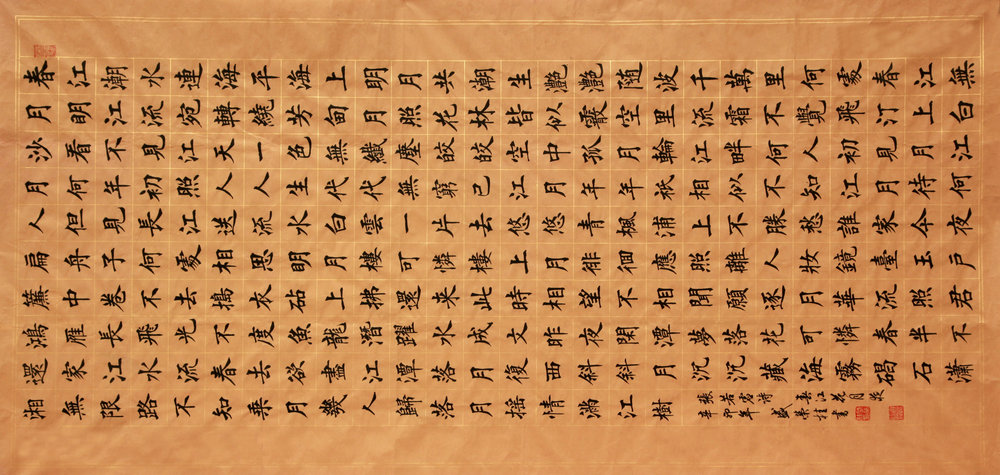 春江潮水連海平海上明月共潮生灩灩随波千萬里何處春江無
月明江流宛轉繞芳甸月照花林皆似霰空里流霜不覺飛汀上白
沙看不見江天一色無纖塵皎皎空中孤月輪江畔何人初見月江
月何年初照人人生代代無窮已江月年年祇相似不知江月待何
人但見長江送流水白雲一片去悠悠青楓浦上不勝愁誰家今夜
扁舟子何處相思明月樓可憐樓上月徘徊應照離人妝鏡臺玉戶
簾中卷不去搗衣砧上拂還來此時相望不相聞願逐月華流照君
鴻雁長飛光不度魚龍潛躍水成文昨夜閑潭夢落花可憐春半不
還家江水流春去欲盡江潭落月復西斜斜月沉沉藏海霧碣石瀟
湘無限路不知乘月幾人歸落月搖情滿江樹
張若虛詩春江花月夜
辛卯年盛榮桂書